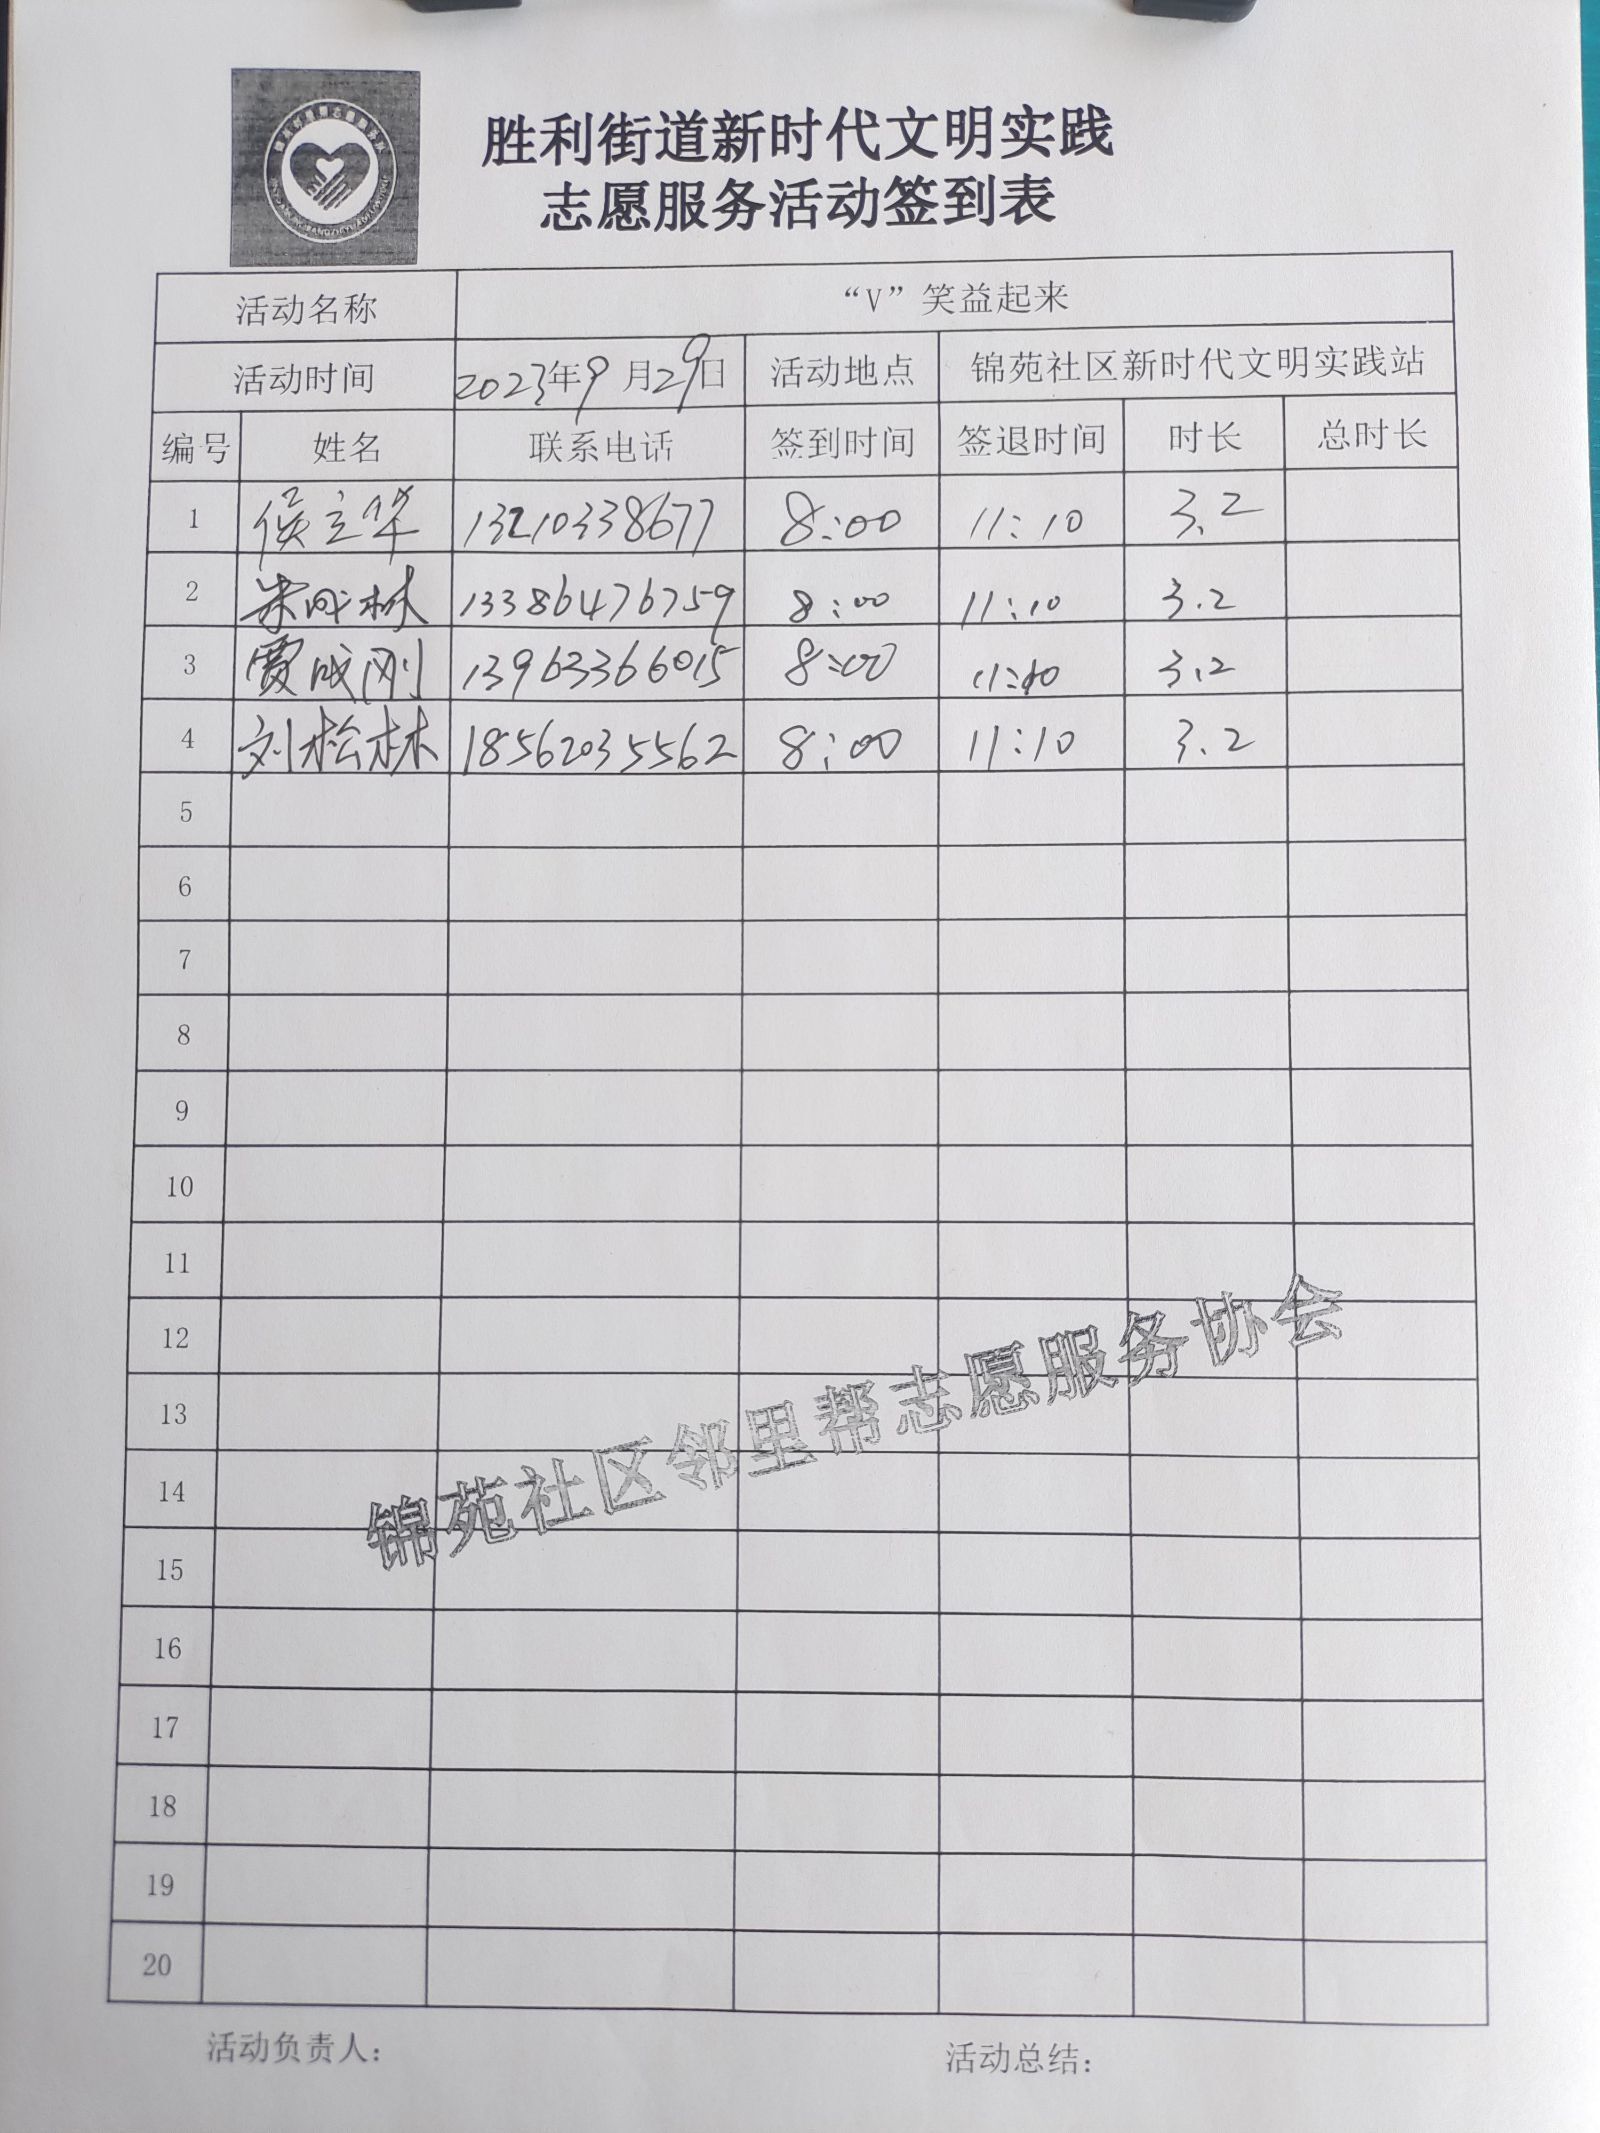 胜利街道新时代文明实践
志愿服务活动签到表
活动名称 “V”笑益起来
活动时间 2023年9月29日 活动地点 锦苑社区新时代文明实践站
编号 姓名 联系电话 签到时间 签退时间 时长 总时长
1 侯立华 13210338677 8:00 11:10 3.2
2 宋成林 13386476759 8:00 11:10 3.2
3 贾成刚 13963366015 8:00 11:10 3.2
4 刘松林 18562035562 8:00 11:10 3.2
5
6
7
8
9
10
11
12
13
14
15
16
17
18
19
20
锦苑社区邻里帮志愿服务协会
活动负责人： 活动总结：